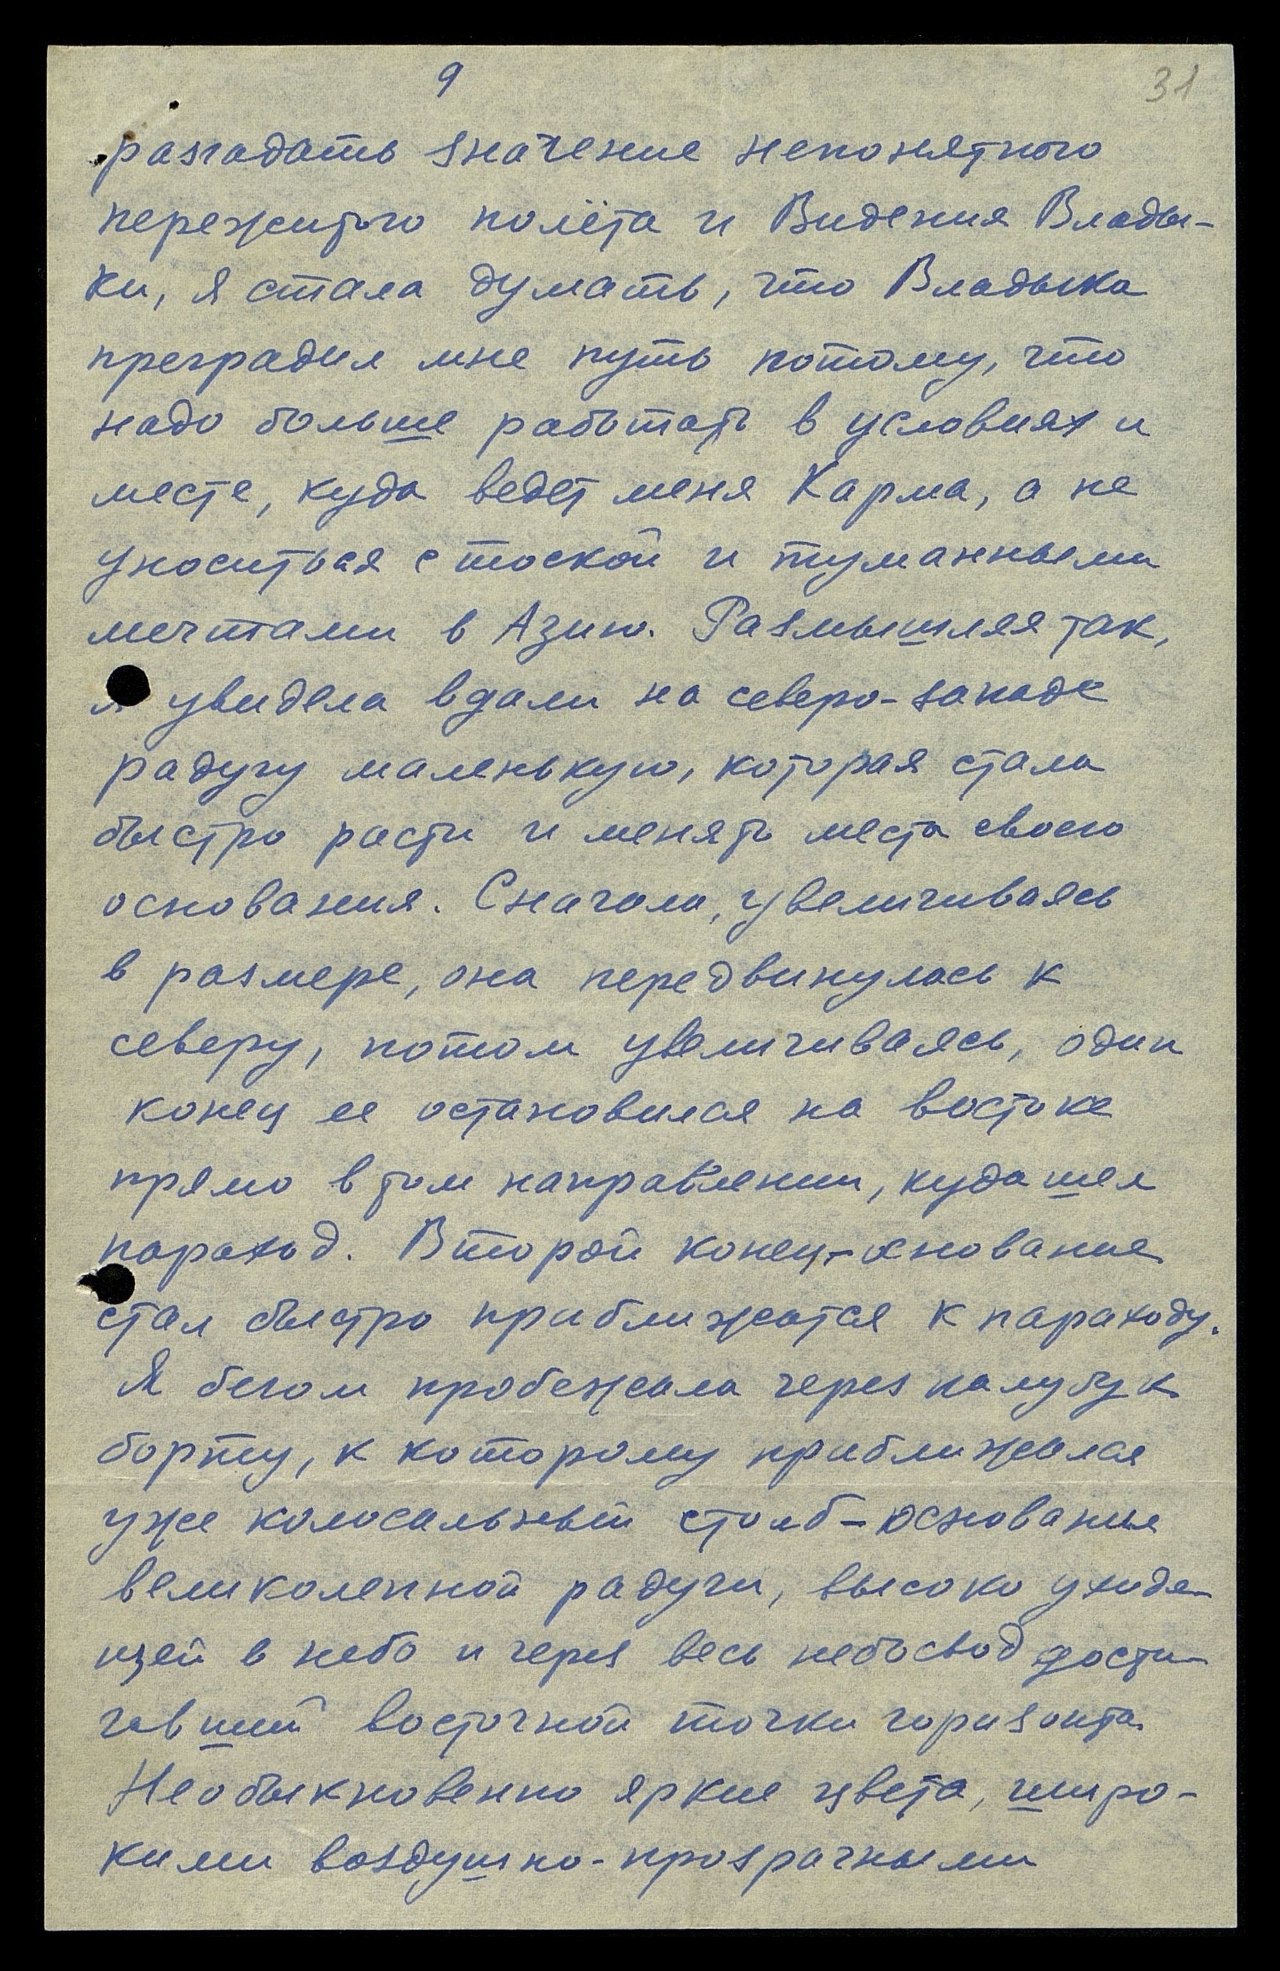 9
31
разгадать значение непонятного
пережитого полёта и Видения Влады-
ки, я стала думать, что Владыка
преградил мне путь потому, что
надо больше работать в условиях и
месте, куда ведет меня Карма, а не
уноситься с тоской и туманными
мечтами в Азию. Размышляя так,
я увидела вдали на северо-западе
радугу маленькую, которая стала
быстро расти и менять места своего
основания. Сначала, увеличиваясь
в размере, она передвинулась к
северу, потом увеличиваясь, один
конец ее остановился на востоке
прямо в том направлении, куда шел
пароход. Второй конец-основание
стал быстро приближатся к пароходу.
Я бегом пробежала через палубу к
борту, к которому приближался
уже колосальный столб-основание
великолепной радуги, высоко уходя-
щей в небо и через весь небосвод дости-
гавший восточной точки горизонта.
Необыкновенно яркие цвета, широ-
кими воздушно-прозрачными